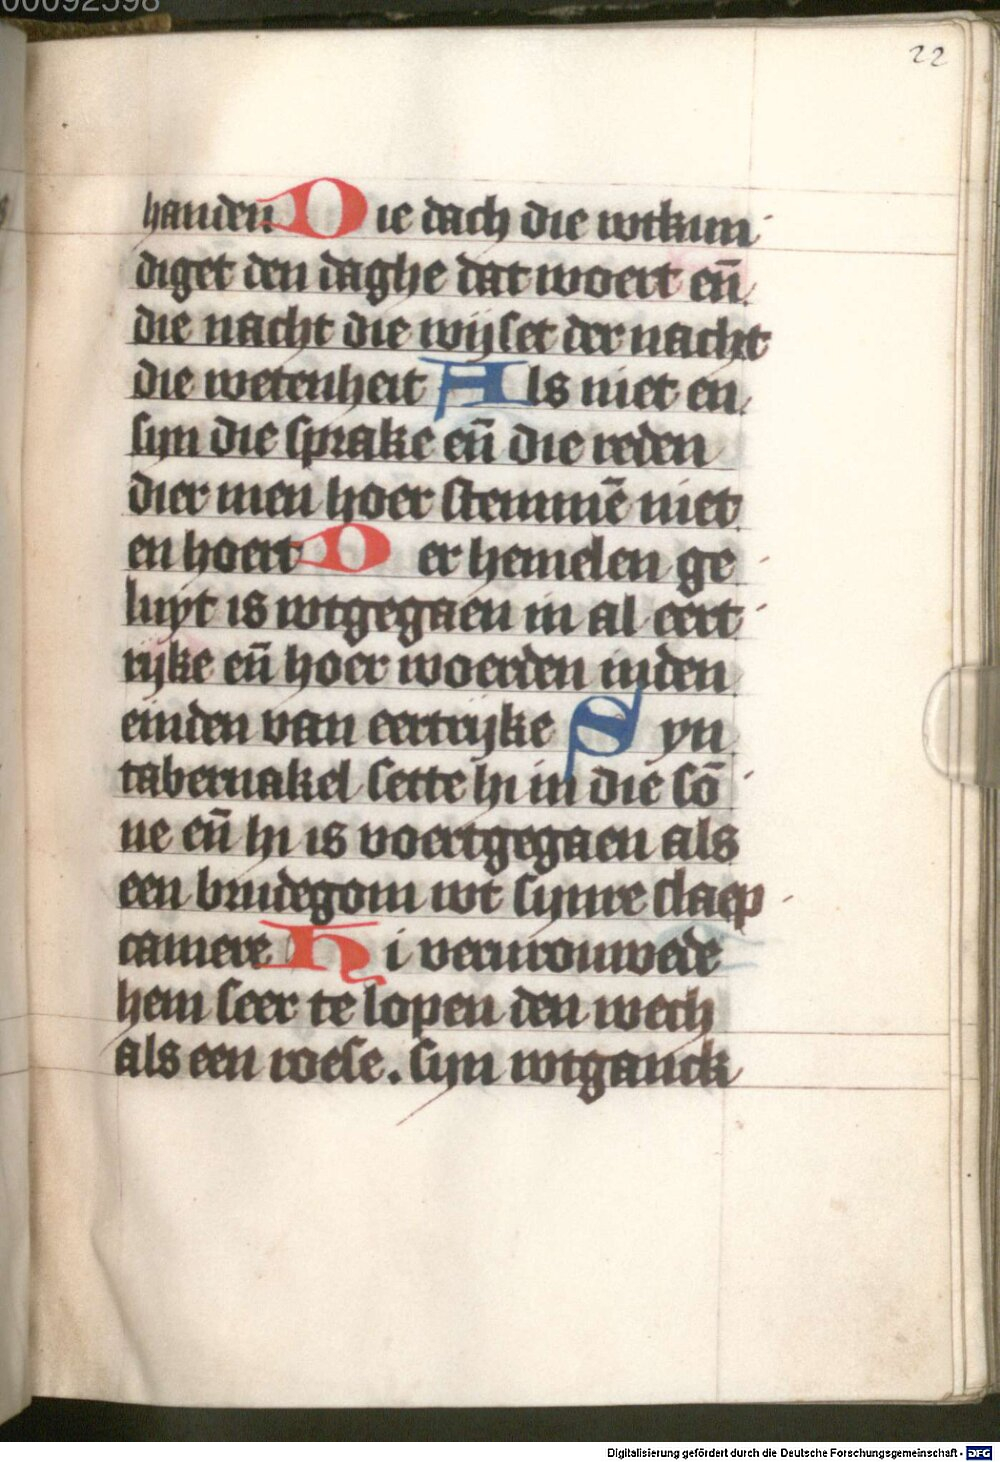 00092598
22
handen Die dach die wtkun
diget den daghe dat woert en̄
die nacht die wijset der nacht
die wetenheit Als niet en
sijn die sprake en̄ die reden
dier men hoer stemmē niet
en hoert Der hemelen ge
luyt is wtgegaen in al eert
rijke en̄ hoer woerden inden
einden van eertrijke Syn
tabernakel sette hi in die sō
ne en̄ hi is voertgegaen als
een brudegom wt sijnre slaep
camere Hi vervrouwede
hem seer te lopen den wech
als een roese. sijn wtganck
Digitalisierung gefördert durch die Deutsche Forschungsgemeinschaft - DFG